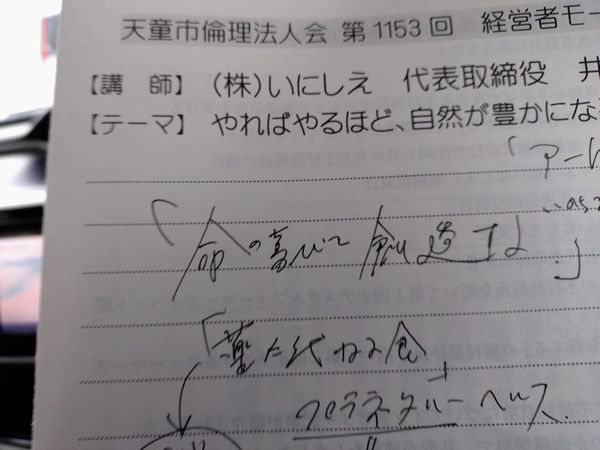 天童市倫理法人会 第1153回 経営者モー
【講 師】 (株)いにしえ 代表取締役 井
【テーマ】 やればやるほど、自然が豊かにな
「アー
「命の喜びで創造す
「薬に代わる食」
プラネタリーヘルス